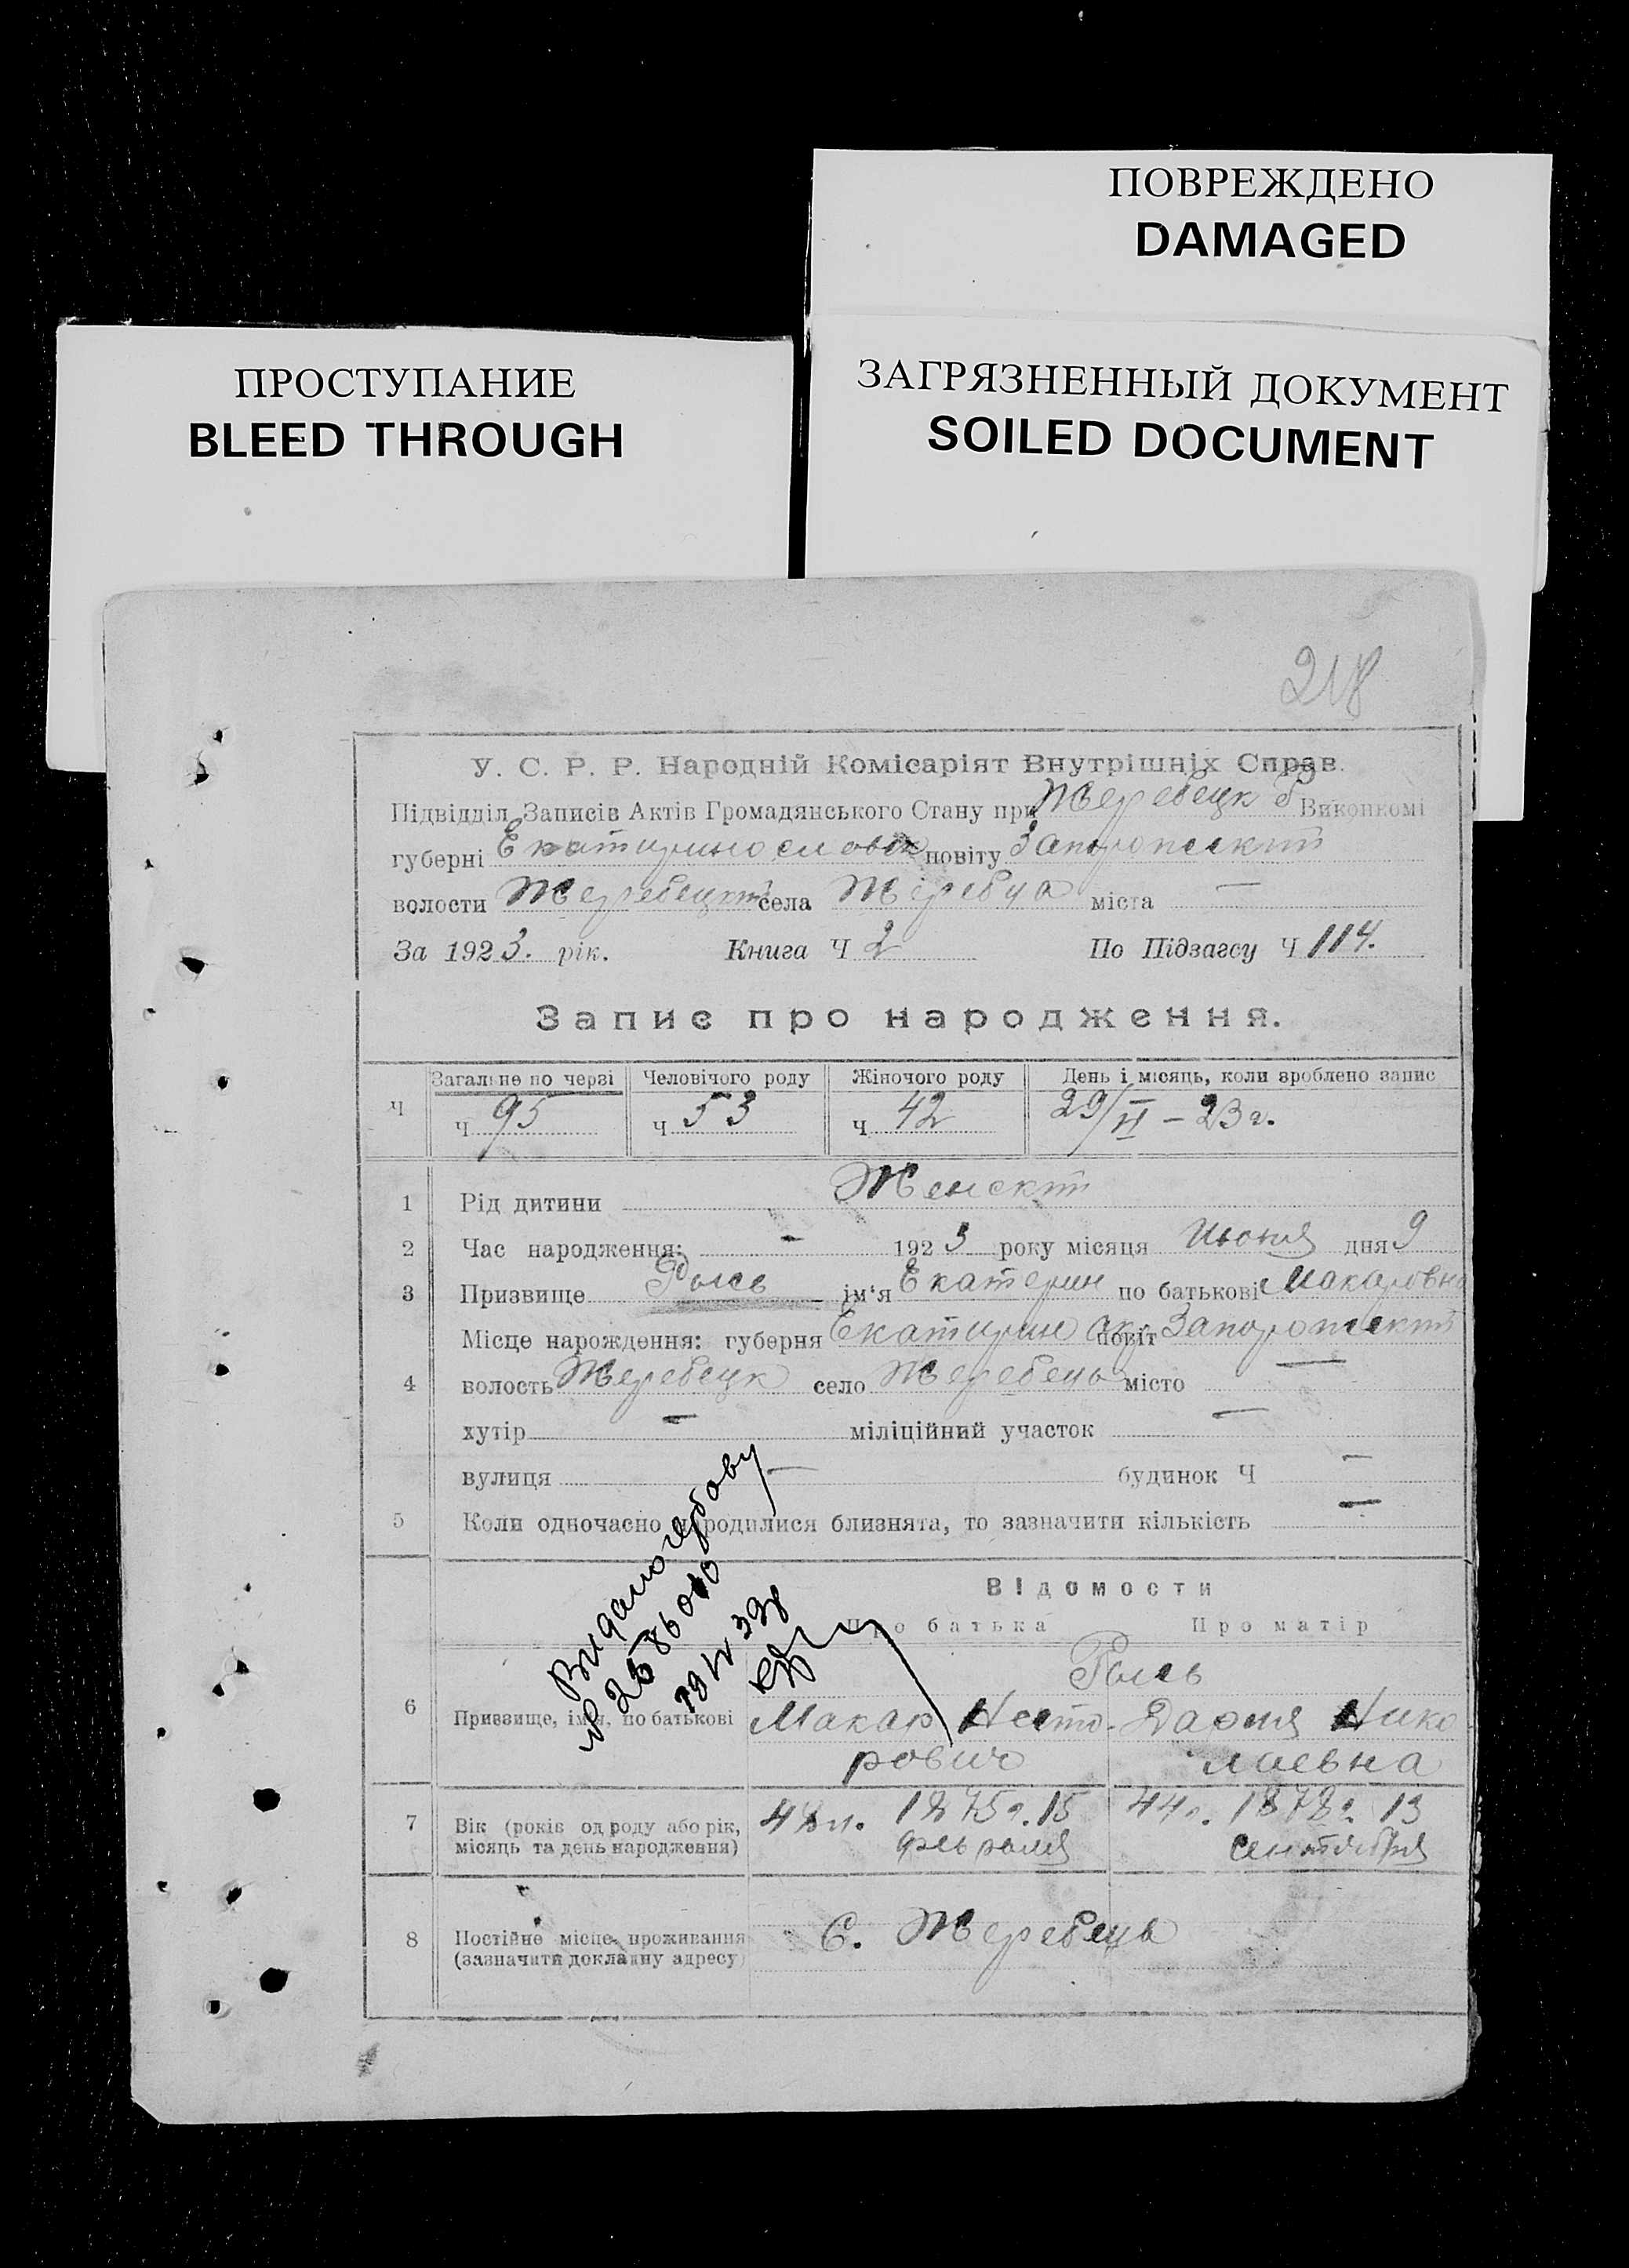 ПОВРЕЖДЕНО
DAMAGED
ПРОСТУПАНИЕ
BLEED THROUGH
ЗАГРЯЗНЕННЫЙ ДОКУМЕНТ
SOILED DOCUMENT
218
У. С. Р. Р. Народній Комісаріят Внутрішніх Справ.
Підвідділ Записів Актів Громадянського Стану при Жеребецк Виконкомі
губерні повіту
волости села міста —
За 1923. рік. Книга Ч 2 По Підзагсу Ч 114.
Запис про народження.
Ч Загальне по черзі Человічого роду Жіночого роду День і місяць, коли зроблено запис
ч 95 ч 53 ч 42 29/VI – 23 г.
1 Рід дитини Женскт
2 Час народження: - 1923 року місяця Июня дня 9
3 Призвище ім'я Екатерин по батькові Макаровн
Місце народження: губерня повіт Запорожскт
4 волость Жеребецк село Жеребець місто —
хутір — міліційний участок —
вулиця — будинок Ч —
5 Коли одночасно народилися близнята, то зазначити кількість —
Відомости
Про батька Про матір
6 Призвище, імя, по батькові Макар Несто- Дария Нико
рович лаевна
7 Вік (років од роду або рік, 1875 г. 15 44 л. 1878 г. 13
місяць та день народження) февраля сентября
8 Постійне місце проживання С. Жеребець
(зазначити докладну адресу)
Видано